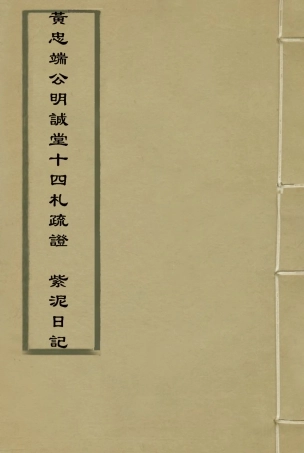 黃忠端公明誠堂十四札疏證　紫泥日記